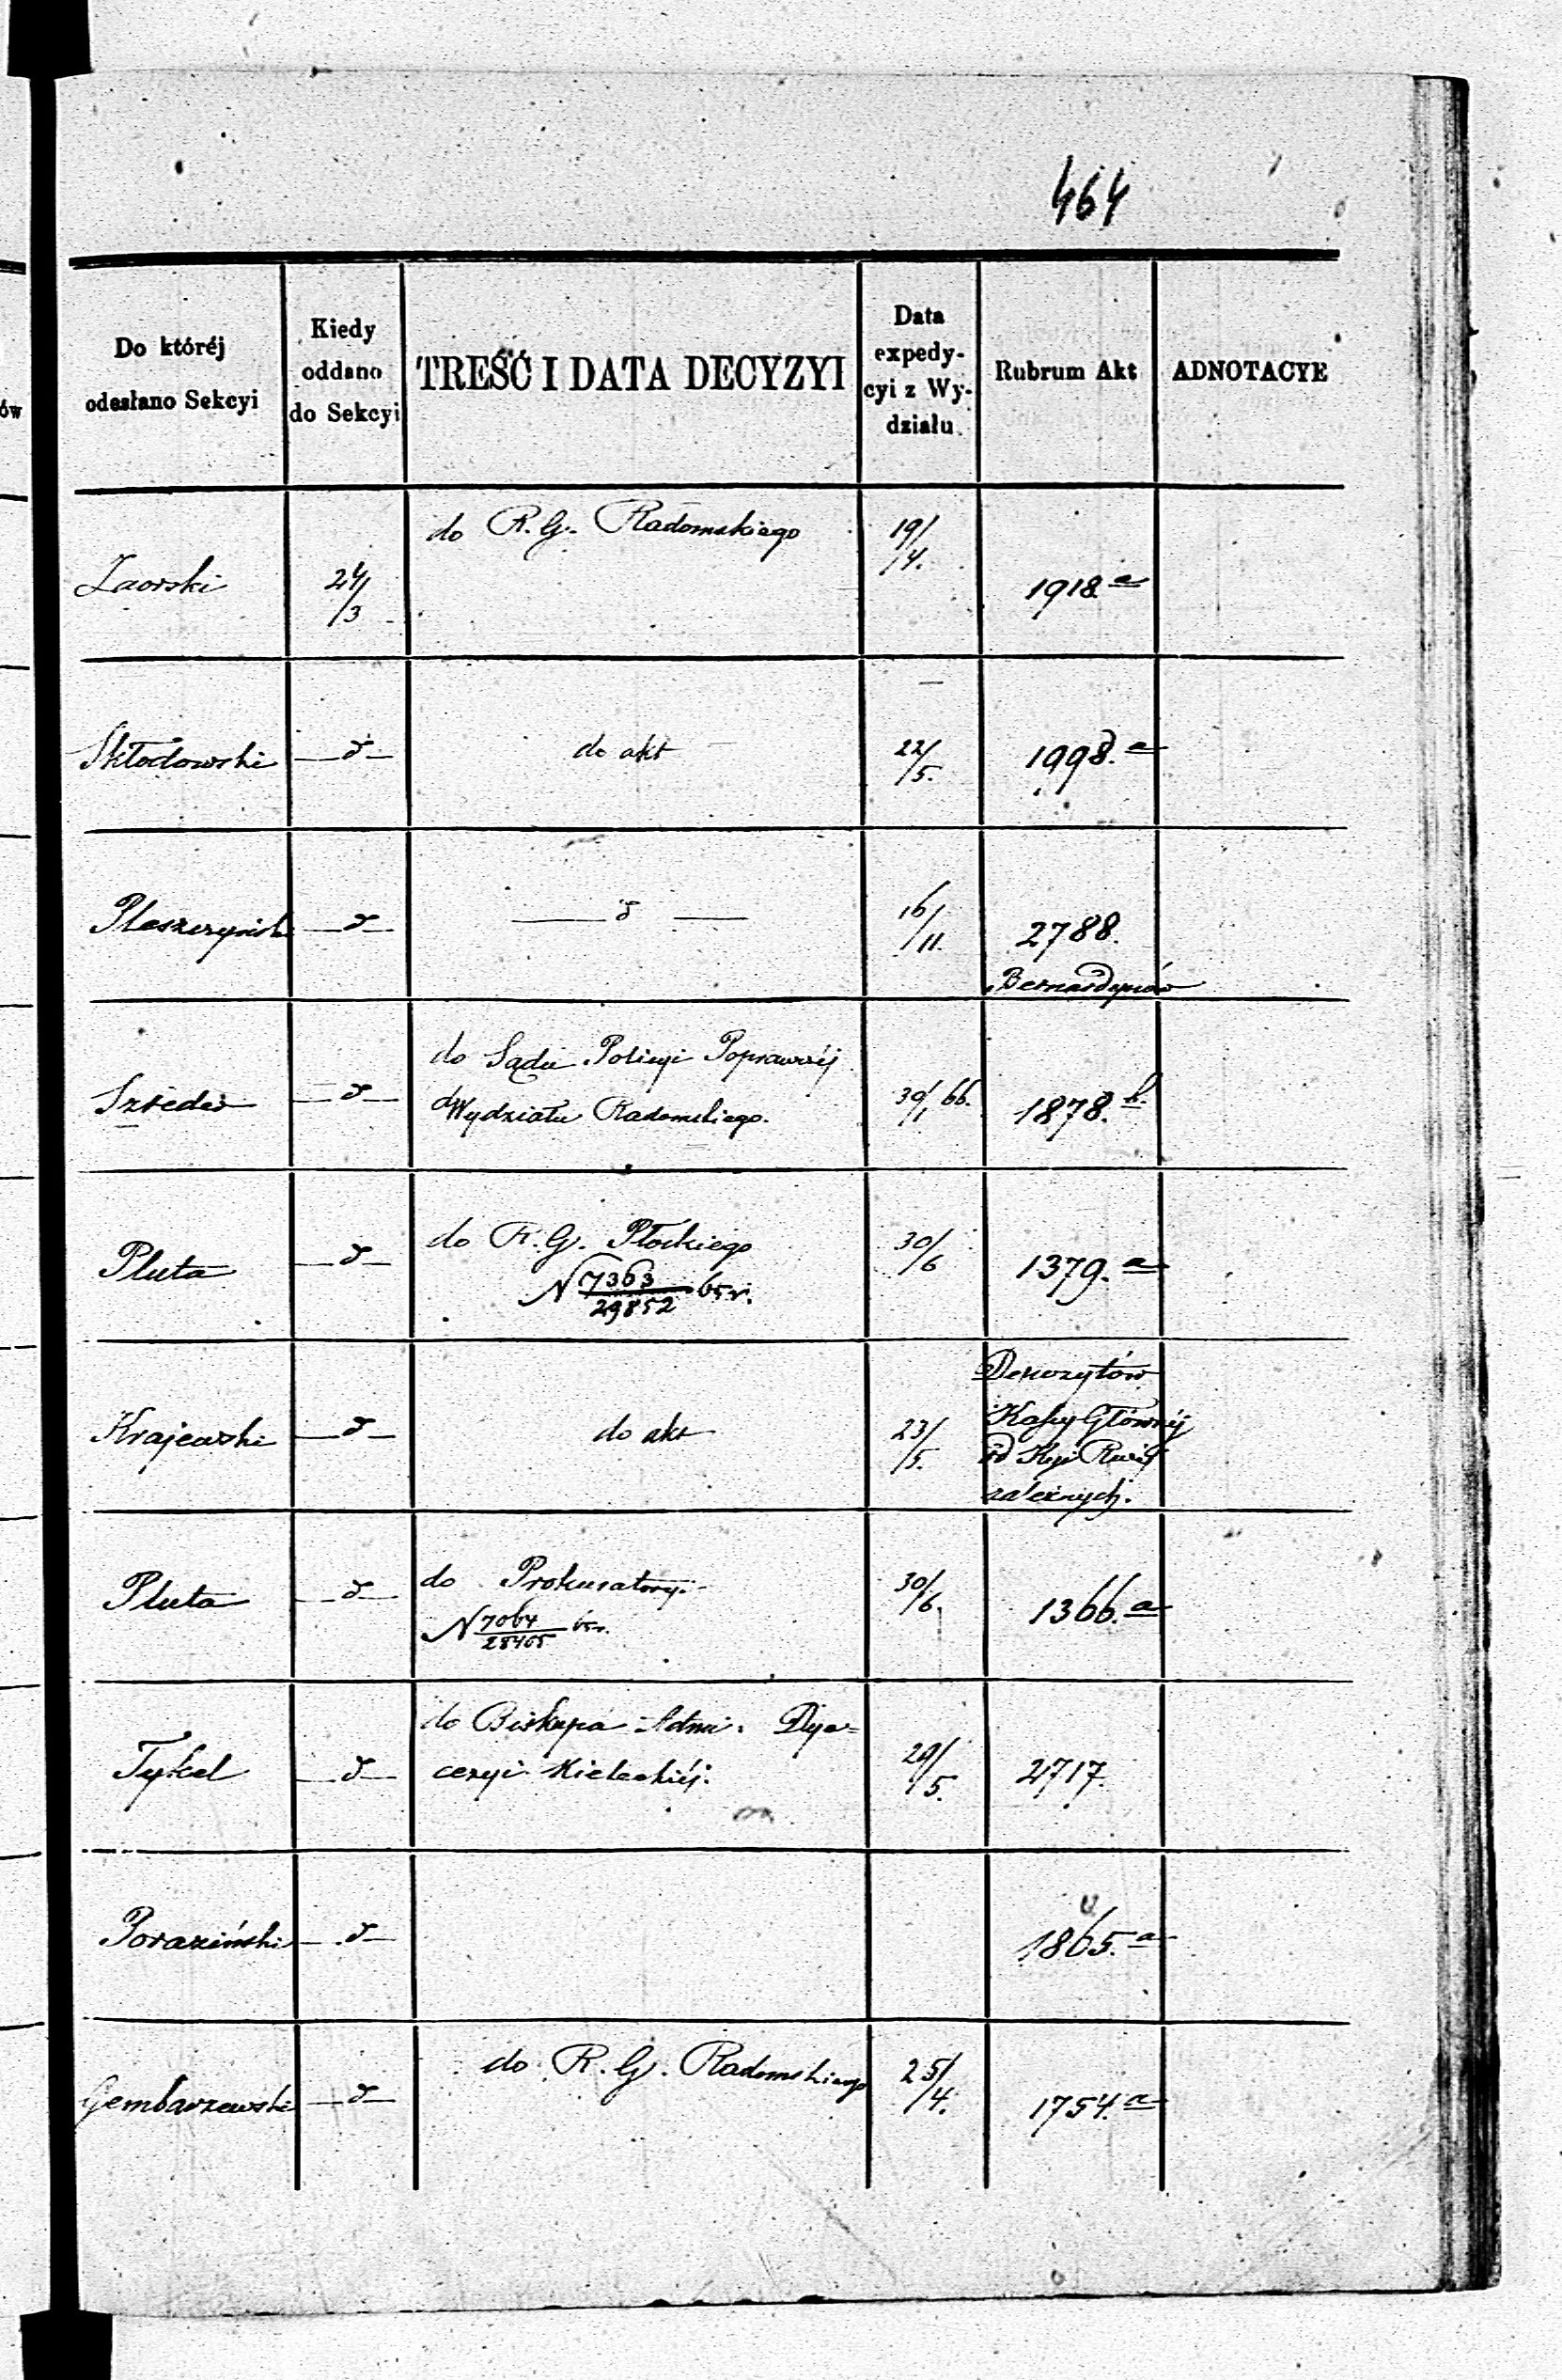 464
Do któréj odesłano Sekcyi
Kiedy oddano do Sekcyi
TREŚĆ I DATA DECYZYI
Data expedycyi z Wydziału
Rubrum Akt
ADNOTACYE
Zaorski 24/3 do R. G. Radomskiego 19/4. 1918 a
Skłodowski — d — do akt 22/5. 1998. a
Pleszczyński — d — — d — 16/11. 2788.
Bernardynów
do Sądu Policyi Poprawczéj
Szreder — d — Wydziału Radomskiego. 30/1 66. 1878. b.
Pluta — d — do R. G. Płockiego 30/6 1379. a
N 7363/29852 65 r.
Krajewski — d — do akt 23/5. Depozytów
Kassy Głównéj
od
zależnych.
Pluta — d — do Prokuratoryi 30/6. 1366. a
N 7064/28405 65 r.
do Biskupa Admi. Dye-
Tykel — d — cezyi Kieleckiéj. 29/5. 2717.
Poraziński — d — 1865. a
Gembarzewski — d — do R. G. Radomskiego 25/4. 1754. a